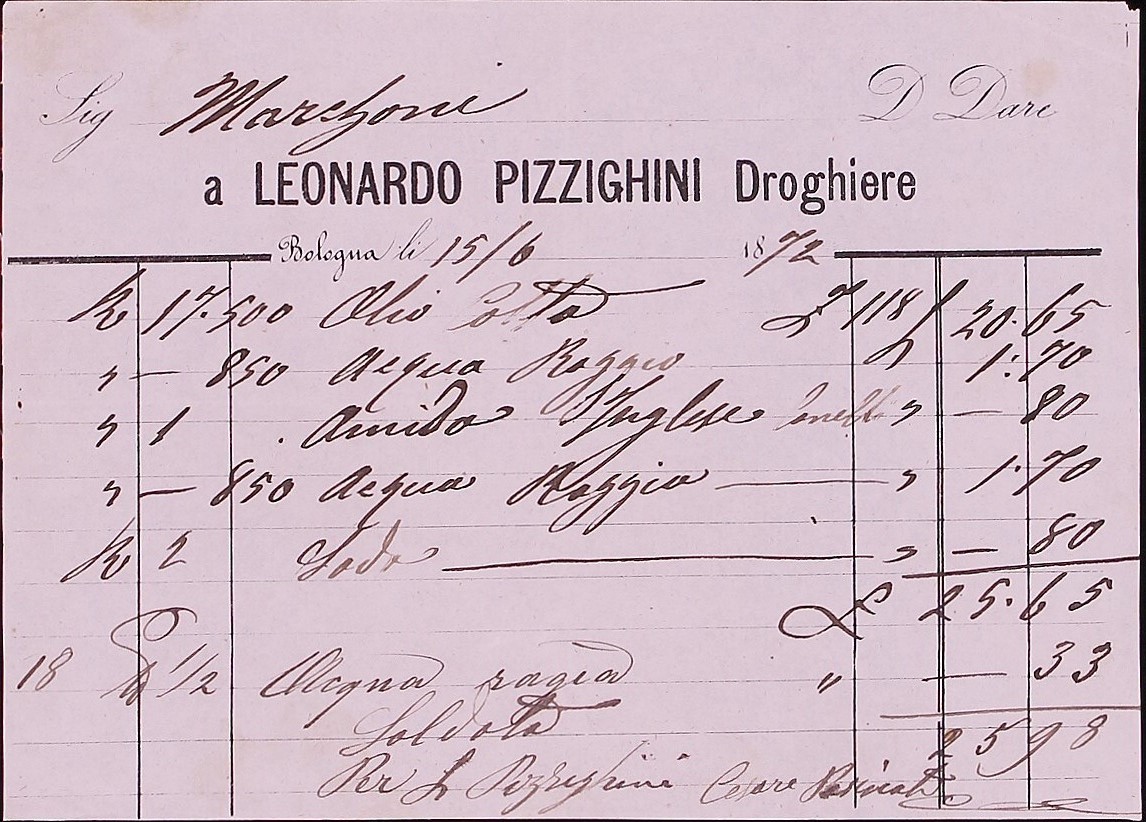 Sig Marchoni D Dare
a LEONARDO PIZZIGHINI Droghiere
Bologna li 15/6 1872
K 17.500 Olio Cotto £ 118 20.65
" — 850 Acqua Raggio 1:70
" 1 . Amido Inglese " — 80
" — 850 Acqua Raggia " 1.70
K 2 Soda " — 80
£ 25.65
18 1/2 Acqua ragia " — 33
Soldato 25 98
Per L Pizzighini Cesare